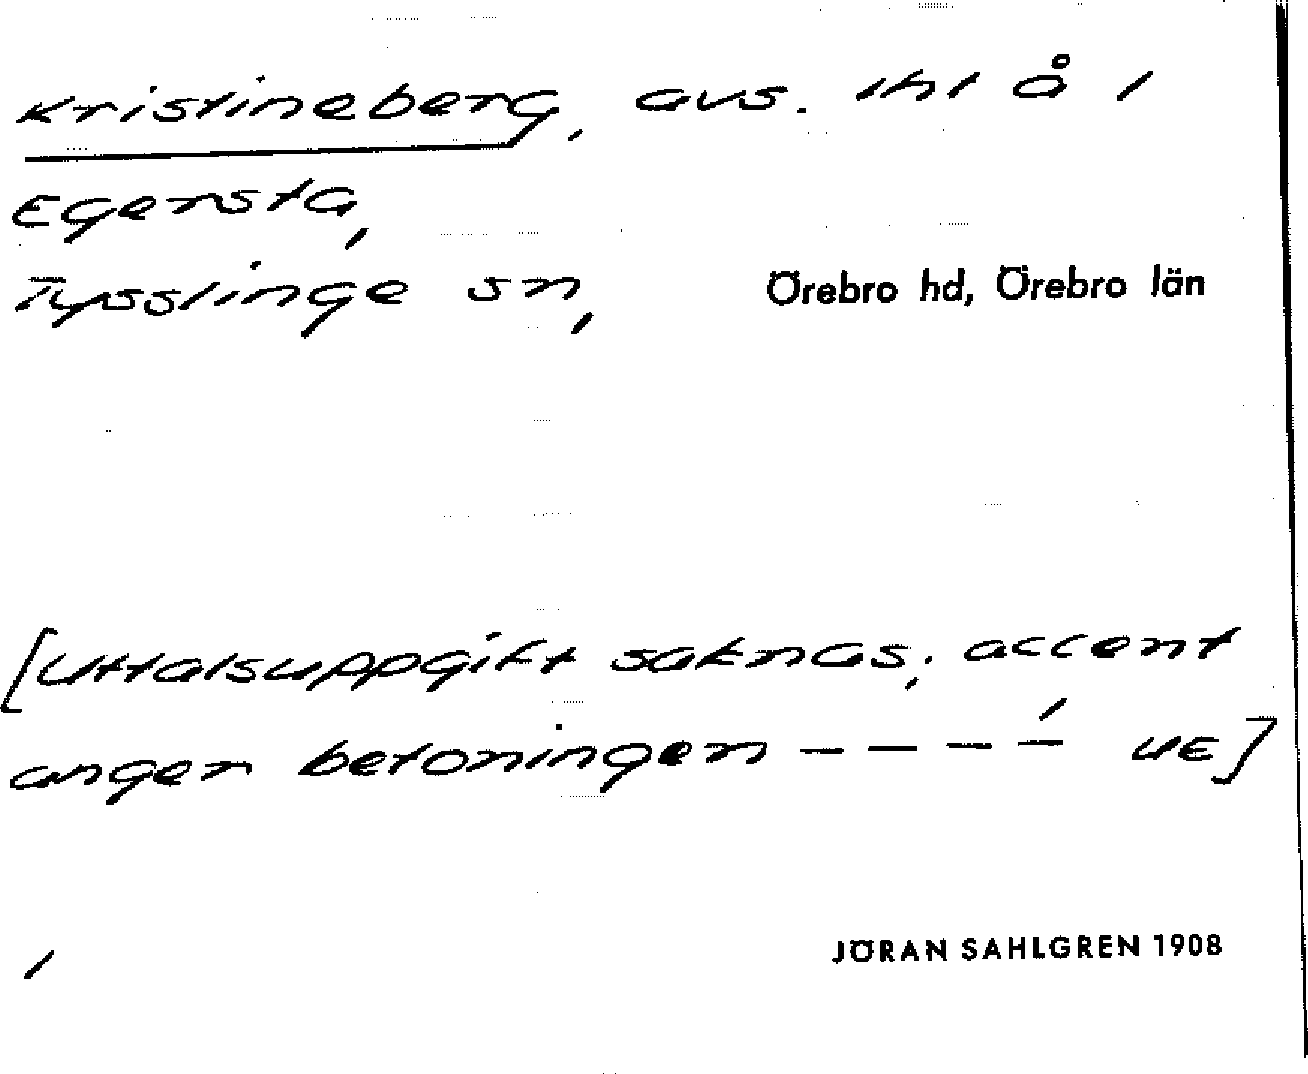 Kristineberg, avs. lht å 1
Egersta,
Tysslinge sn, Örebro hd, Örebro län
[Uttalsuppgift saknas; accent
anger betoningen – – – –́ UE]
JÖRAN SAHLGREN 1908